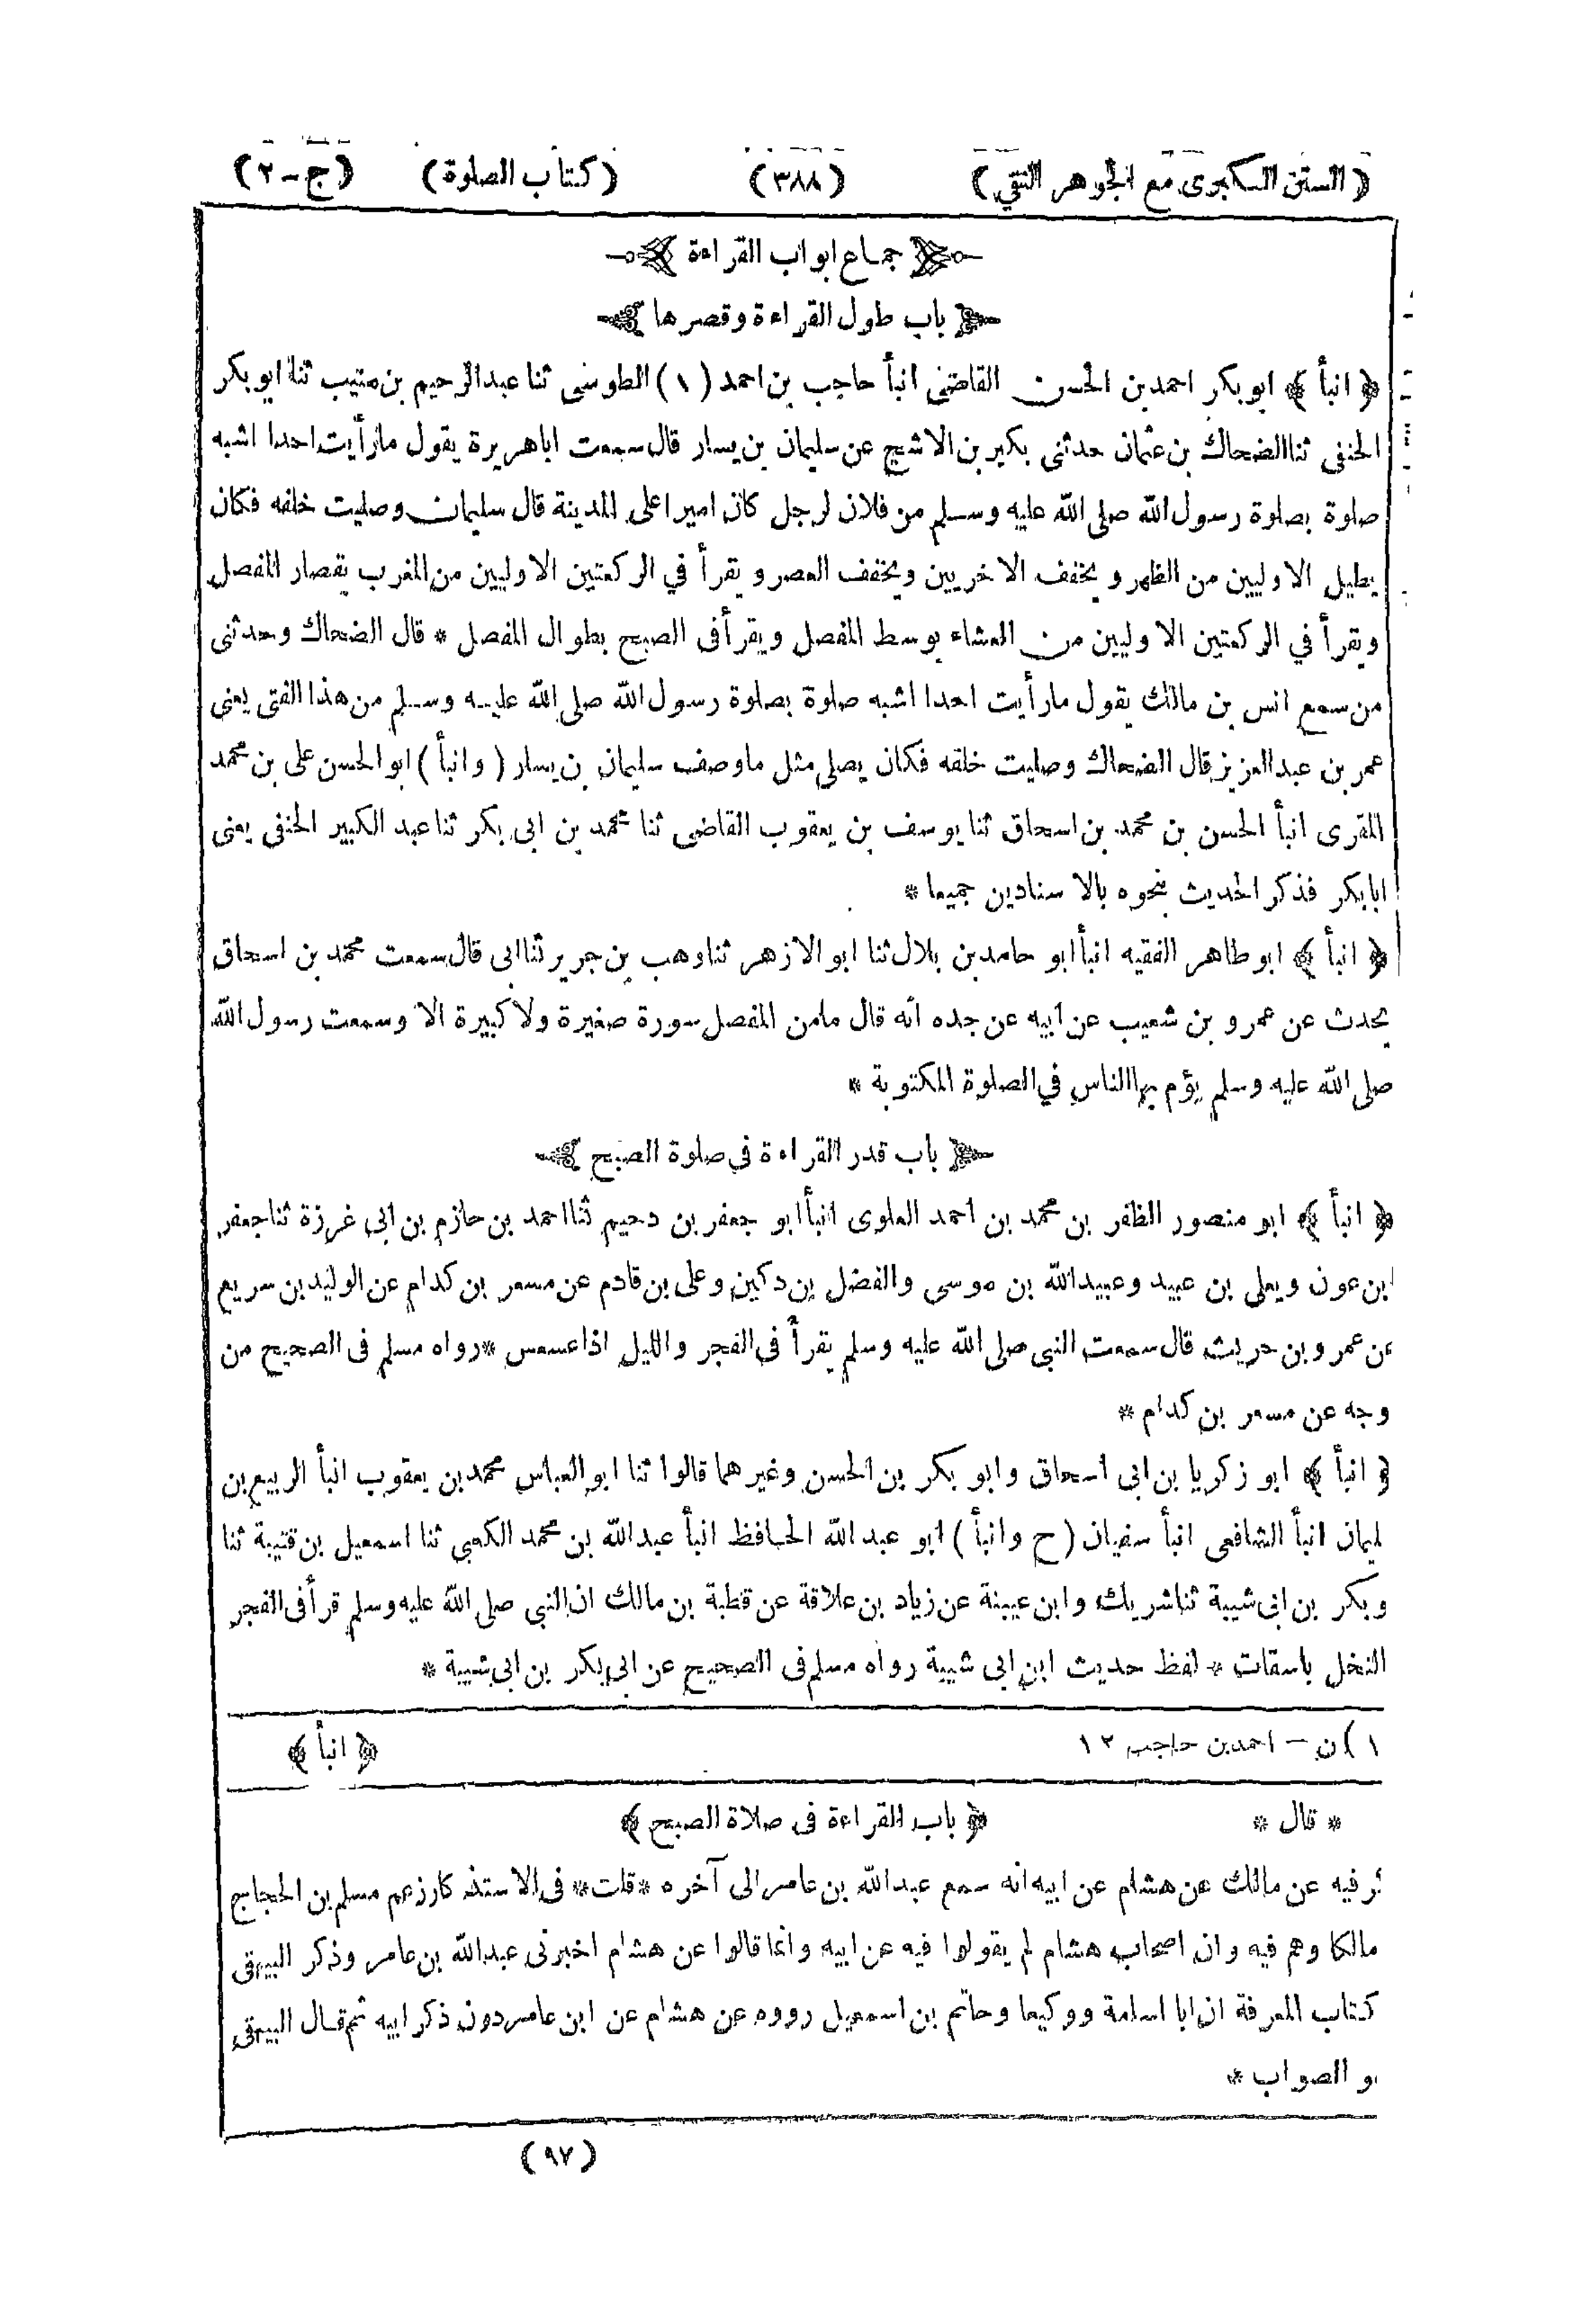 (السنن الكبرى مع الجوهر النقي) (٣٨٨) (كتاب الصلوة) (ج-٢)
جماع ابواب القراءة
باب طول القراءة وقصرها
﴿ انبأ ﴾ ابو بكر احمد بن الحسن القاضي انبأ حاجب بن احمد (١) الطوسي ثنا عبدالرحيم بن منيب ثنا ابو بكر
الحنفي ثنا الضحاك بن عثمان حدثني بكير بن الاشج عن سليمان بن يسار قال سمعت اباهريرة يقول مارأيت احدا اشبه
صلوة بصلوة رسول الله صلى الله عليه وسلم من فلان لرجل كان اميرا على المدينة قال سليمان وصليت خلفه فكان
يطيل الاوليين من الظهر ويخفف الاخريين ويخفف العصر ويقرأ في الركعتين الاوليين من المغرب بقصار المفصل
ويقرأ في الركعتين الاوليين من العشاء بوسط المفصل ويقرأ فى الصبح بطوال المفصل * قال الضحاك وحدثنى
من سمع انس بن مالك يقول مارأيت احدا اشبه صلوة بصلوة رسول الله صلى الله عليه وسلم من هذا الفتى يعنى
عمر بن عبدالعزيز قال الضحاك وصليت خلفه فكان يصلي مثل ماوصف سليمان بن يسار (وانبأ) ابو الحسن على بن محمد
المقرى انبأ الحسن بن محمد بن اسحاق ثنا يوسف بن يعقوب القاضى ثنا محمد بن ابى بكر ثنا عبد الكبير الحنفى يعنى
ابابكر فذكر الحديث بنحوه بالاسنادين جميعا *
﴿ انبأ ﴾ ابو طاهر الفقيه انبأ ابو حامد بن بلال ثنا ابو الازهر ثنا وهب بن جرير ثنا ابى قال سمعت محمد بن اسحاق
يحدث عن عمرو بن شعيب عن ابيه عن جده انه قال مامن المفصل سورة صغيرة ولا كبيرة الا وسمعت رسول الله
صلى الله عليه وسلم يؤم بها الناس في الصلوة المكتوبة *
باب قدر القراءة في صلوة الصبح
﴿ انبأ ﴾ ابو منصور الظفر بن محمد بن احمد العلوى انبأ ابو جعفر بن دحيم ثنا احمد بن حازم بن ابى غرزة ثنا جعفر
ابن عون ويعلى بن عبيد وعبيدالله بن موسى والفضل بن دكين وعلى بن قادم عن مسعر بن كدام عن الوليد بن سريع
عن عمرو بن حريث قال سمعت النبي صلى الله عليه وسلم يقرأ فى الفجر والليل اذا عسعس * رواه مسلم فى الصحيح من
وجه عن مسعر بن كدام *
﴿ انبأ ﴾ ابو زكريا بن ابى اسحاق وابو بكر بن الحسن وغيرهما قالوا ثنا ابو العباس محمد بن يعقوب انبأ الربيع بن
ليمان انبأ الشافعى انبأ سفيان (ح وانبأ) ابو عبدالله الحافظ انبأ عبدالله بن محمد الكعبي ثنا اسمعيل بن قتيبة ثنا
وبكر بن ابى شيبة ثنا شريك وابن عيينة عن زياد بن علاقة عن قطبة بن مالك ان النبي صلى الله عليه وسلم قرأ فى الفجر
النخل باسقات * لفظ حديث ابن ابى شيبة رواه مسلم فى الصحيح عن ابى بكر بن ابى شيبة *
١) ن – احمد بن حاجب ١٢ ﴿ انبأ ﴾
* قال * ﴿ باب القراءة فى صلاة الصبح ﴾
كر فيه عن مالك عن هشام عن ابيه انه سمع عبدالله بن عامر الى آخره * قلت * فى الاستذكار زعم مسلم بن الحجاج
مالكا وهم فيه وان اصحاب هشام لم يقولوا فيه عن ابيه وانما قالوا عن هشام اخبرنى عبدالله بن عامر وذكر البيهقى
كتاب المعرفة ان ابا اسامة ووكيعا وحاتم بن اسمعيل رووه عن هشام عن ابن عامر دون ذكر ابيه ثم قال البيهقى
و الصواب *
(٩٧)